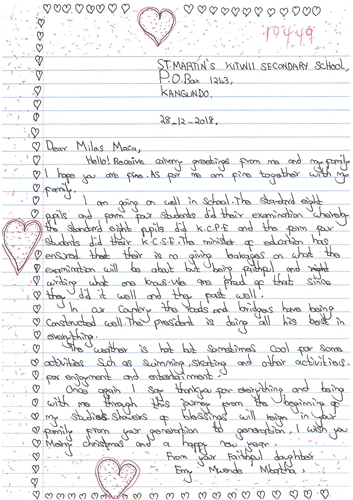 10449
ST.MARTIN'S KITWII SECONDARY SCHOOL,
P.O.Box 1243,
KANGUNDO.
28-12-2018.
Dear Milas Maca,
Hello! Receive calvary greetings from me and my family
I hope you are fine. As for me am fine together with my
family.
I am going on well in school. The standard eight
pupils and form four students did their examination whereby
the standard eight pupils did K.C.P.E and the form four
students did their K.C.S.E. The minister of education has
ensured that their is no giving leakages on what the
examination will be about but being faithful and
writing what one knows. We are proud of that since
they did it well and they past well.
In our country the roads and bridges have being
constructed well. The president is doing all his best in
everything.
The weather is hot but sometimes cool for some
activities such as swimming, skating and other activities.
for enjoyment and entertainment
Once again I say thankyou for everything and being
with me through this journey from the beginning of
my studies. Showers of blessings will reign in your
family from your generation to generation, I wish you
Merry christmas and a happy new year.
From your Faithful daughter
Emy Mwende Mbatha.